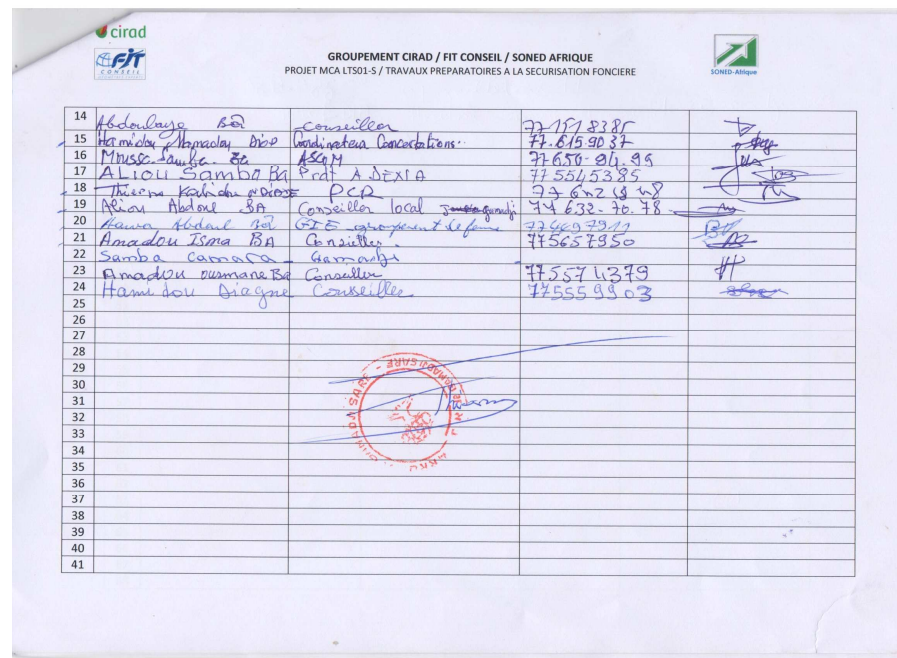 cirad
FIT
CONSEIL
SONED-Afrique
GROUPEMENT CIRAD / FIT CONSEIL / SONED AFRIQUE
PROJET MCA LTS01-S / TRAVAUX PREPARATOIRES A LA SECURISATION FONCIERE
14 Abdoulaye Bâ conseiller 77 151 8385
15 Hamidou Mamadou Diop Coordinateur Concertations 77.615.9037
16 Moussa Samba Ba 77650-94.99
17 ALIOU Samba Ba A DEXIA 775545385
18 Thierno PCR
19 Aliou Abdoul BA Conseiller local 77 632-70.78
20 Hawa Abdoul Bâ GIE groupement
21 Amadou Isma BA Conseiller. 775657950
22 Samba camara
23 Amadou ousmane Ba Conseiller 775574379
24 Hamidou Diagne Conseiller 775559903
25
26
27
28
29
30
31
32
33
34
35
36
37
38
39
40
41